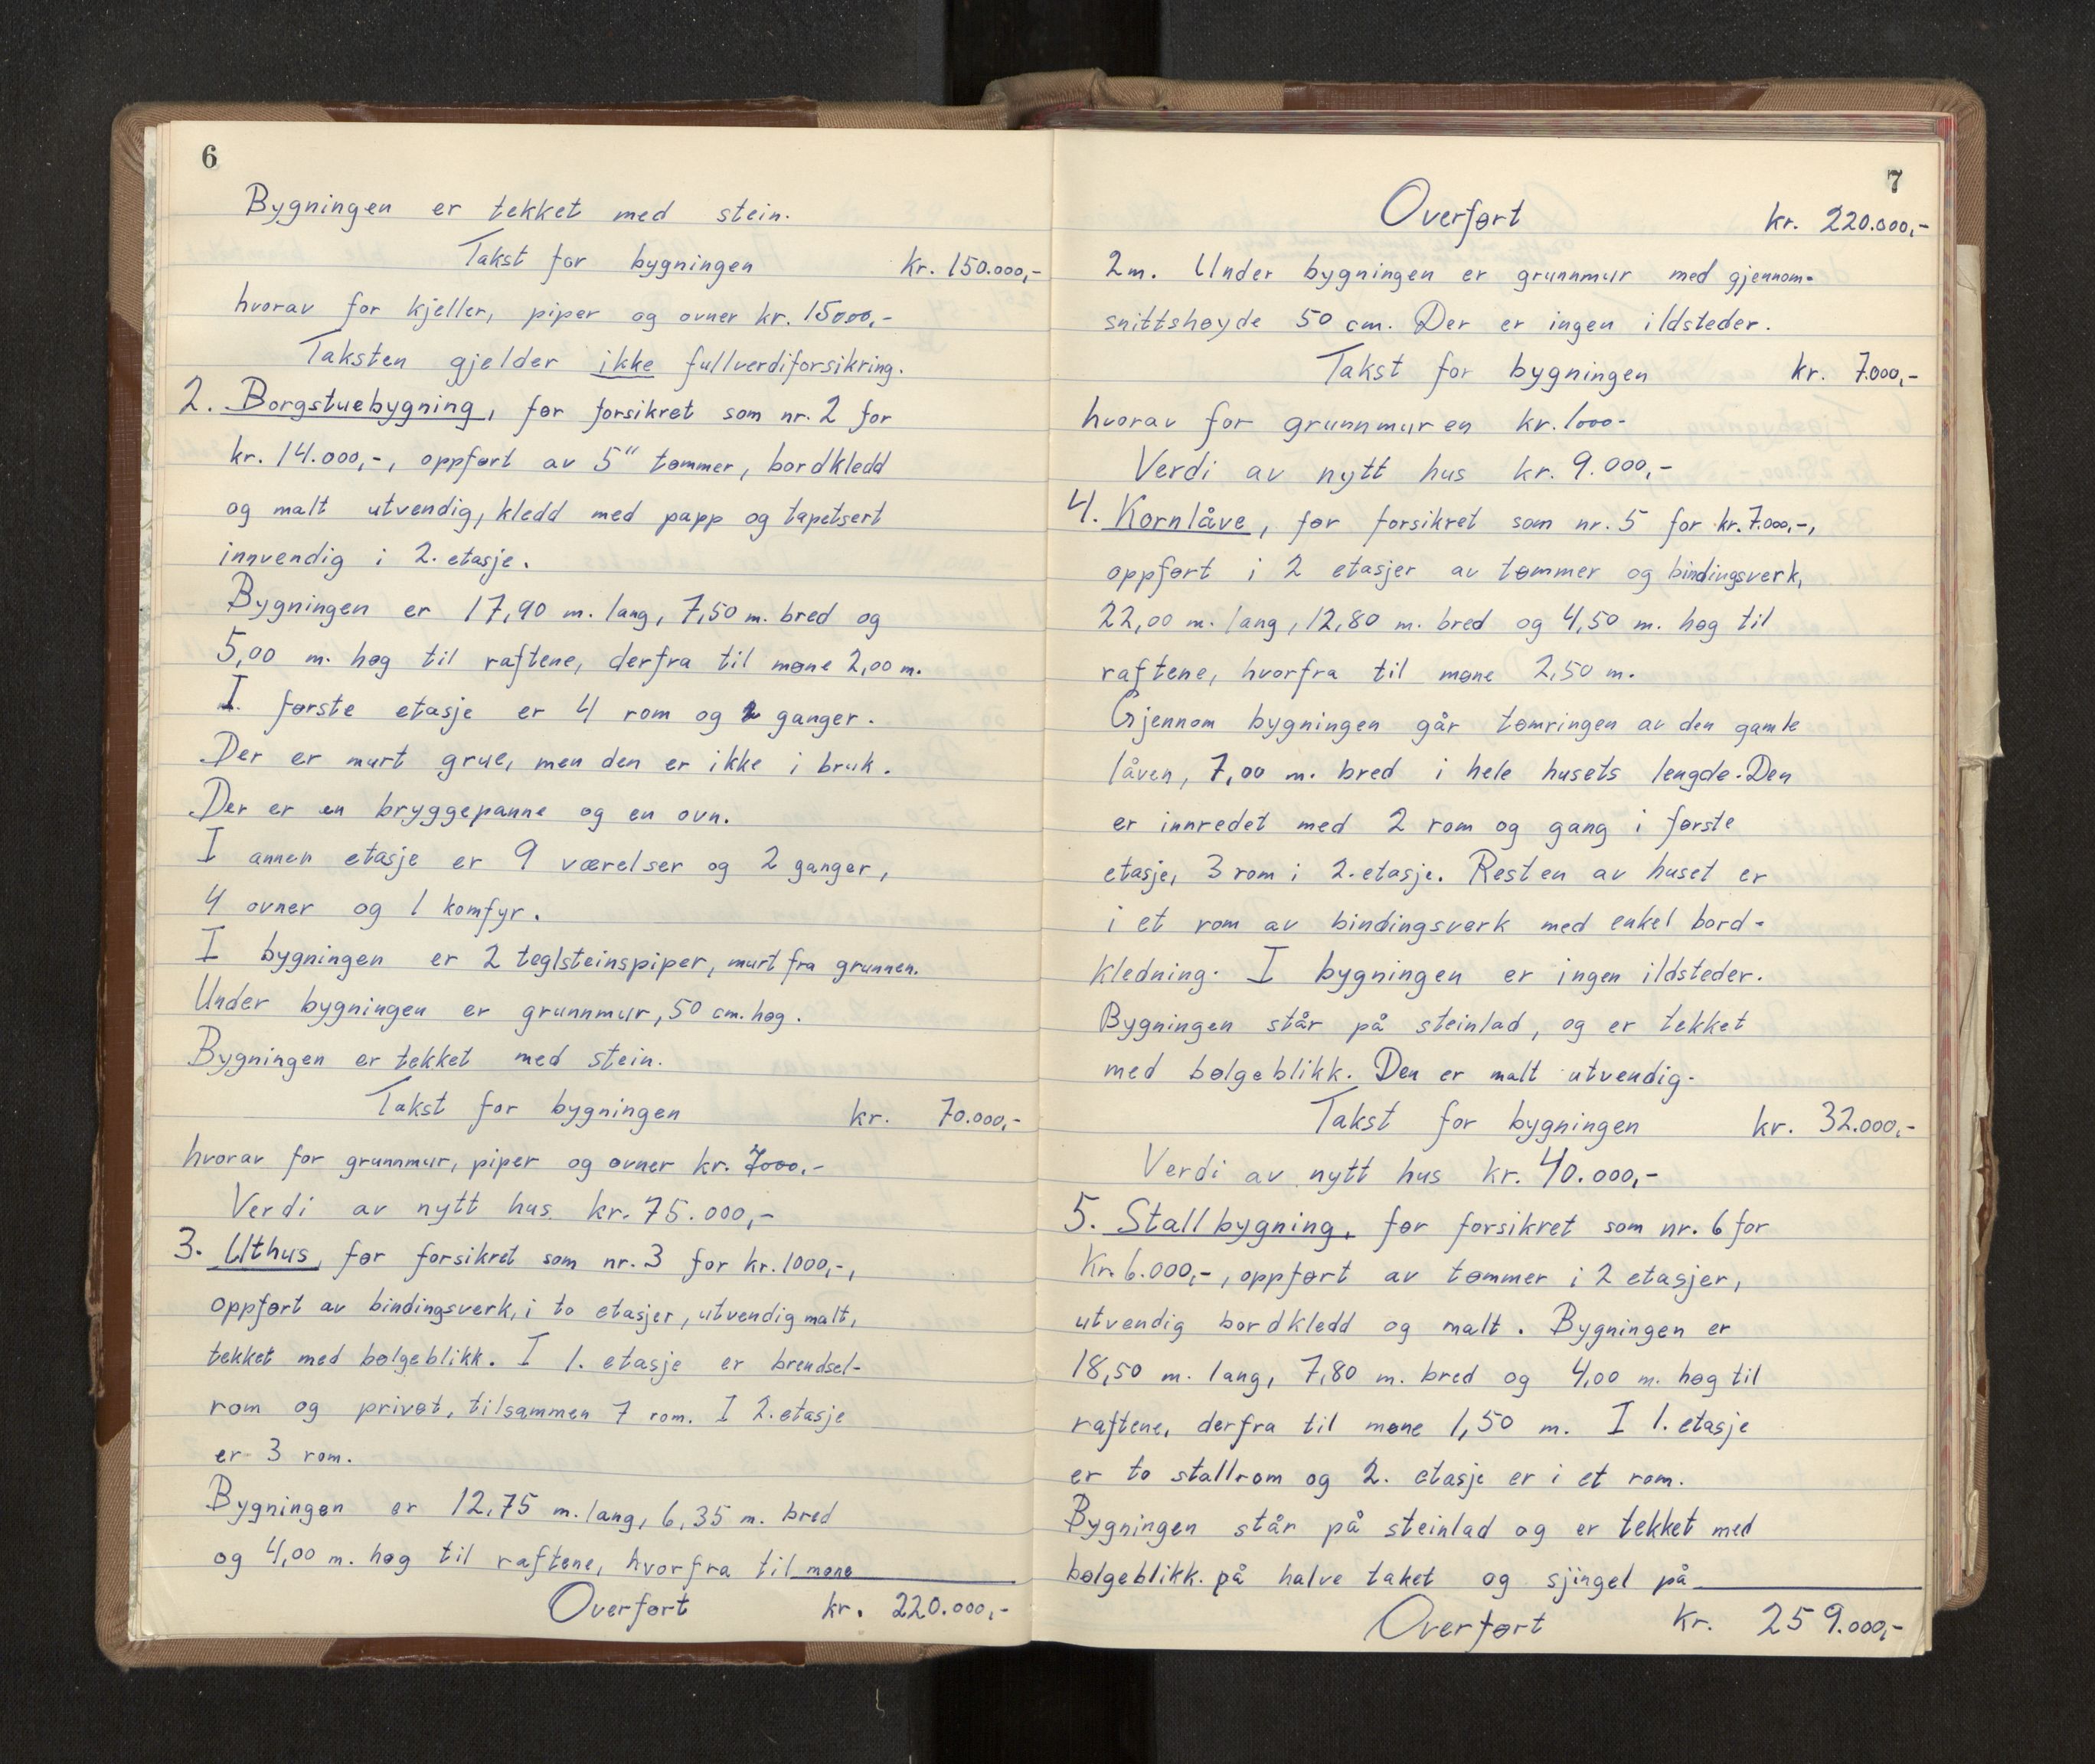 6
Bygningen er tekket med stein.
Takst for bygningen kr. 150.000,-
hvorav for kjeller, piper og ovner kr. 15000,-
Taksten gjelder ikke fullverdiforsikring.
2. Borgstuebygning, før forsikret som nr. 2 for
kr. 14.000,-, oppført av 5" tømmer, bordkledd
og malt utvendig, kledd med papp og tapetsert
innvendig i 2. etasje.
Bygningen er 17,90 m. lang, 7,50 m. bred og
5,00 m. høg til raftene, derfra til møne 2,00 m.
I første etasje er 4 rom og 2 ganger.
Der er murt grue, men den er ikke i bruk.
Der er en bryggepanne og en ovn.
I annen etasje er 9 værelser og 2 ganger,
4 ovner og 1 komfyr.
I bygningen er 2 teglsteinspiper, murt fra grunnen.
Under bygningen er grunnmur, 50 cm. høg.
Bygningen er tekket med stein.
Takst for bygningen kr. 70.000,-
hvorav for grunnmur, piper og ovner kr. 7000,-
Verdi av nytt hus kr. 75.000,-
3. Uthus, før forsikret som nr. 3 for kr. 1000,-,
oppført av bindingsverk, i to etasjer, utvendig malt,
tekket med bølgeblikk. I 1. etasje er brendsel-
rom og privet, tilsammen 7 rom. I 2. etasje
er 3 rom.
Bygningen er 12,75 m. lang, 6,35 m. bred
og 4,00 m. høg til raftene, hvorfra til møne
Overført kr. 220.000,-
7
Overført kr. 220.000,-
2m. Under bygningen er grunnmur med gjennom-
snittshøyde 50 cm. Der er ingen ildsteder.
Takst for bygningen kr. 7.000,-
hvorav for grunnmuren kr. 1000-
Verdi av nytt hus kr. 9.000,-
4. Kornlåve, før forsikret som nr. 5 for kr. 7.000,-,
oppført i 2 etasjer av tømmer og bindingsverk,
22,00 m. lang, 12,80 m. bred og 4,50 m. høg til
raftene, hvorfra til møne 2,50 m.
Gjennom bygningen går tømringen av den gamle
låven, 7,00 m. bred i hele husets lengde. Den
er innredet med 2 rom og gang i første
etasje, 3 rom i 2. etasje. Resten av huset er
i et rom av bindingsverk med enkel bord-
kledning. I bygningen er ingen ildsteder.
Bygningen står på steinlad, og er tekket
med bølgeblikk. Den er malt utvendig.
Takst for bygningen kr. 32.000,-
Verdi av nytt hus kr. 40.000,-
5. Stallbygning, før forsikret som nr. 6 for
Kr. 6.000,-, oppført av tømmer i 2 etasjer,
utvendig bordkledd og malt. Bygningen er
18,50 m. lang, 7,80 m. bred og 4,00 m. høg til
raftene, derfra til møne 1,50 m. I 1. etasje
er to stallrom og 2. etasje er i et rom.
Bygningen står på steinlad og er tekket med
bølgeblikk på halve taket og sjingel på
Overført kr. 259.000,-